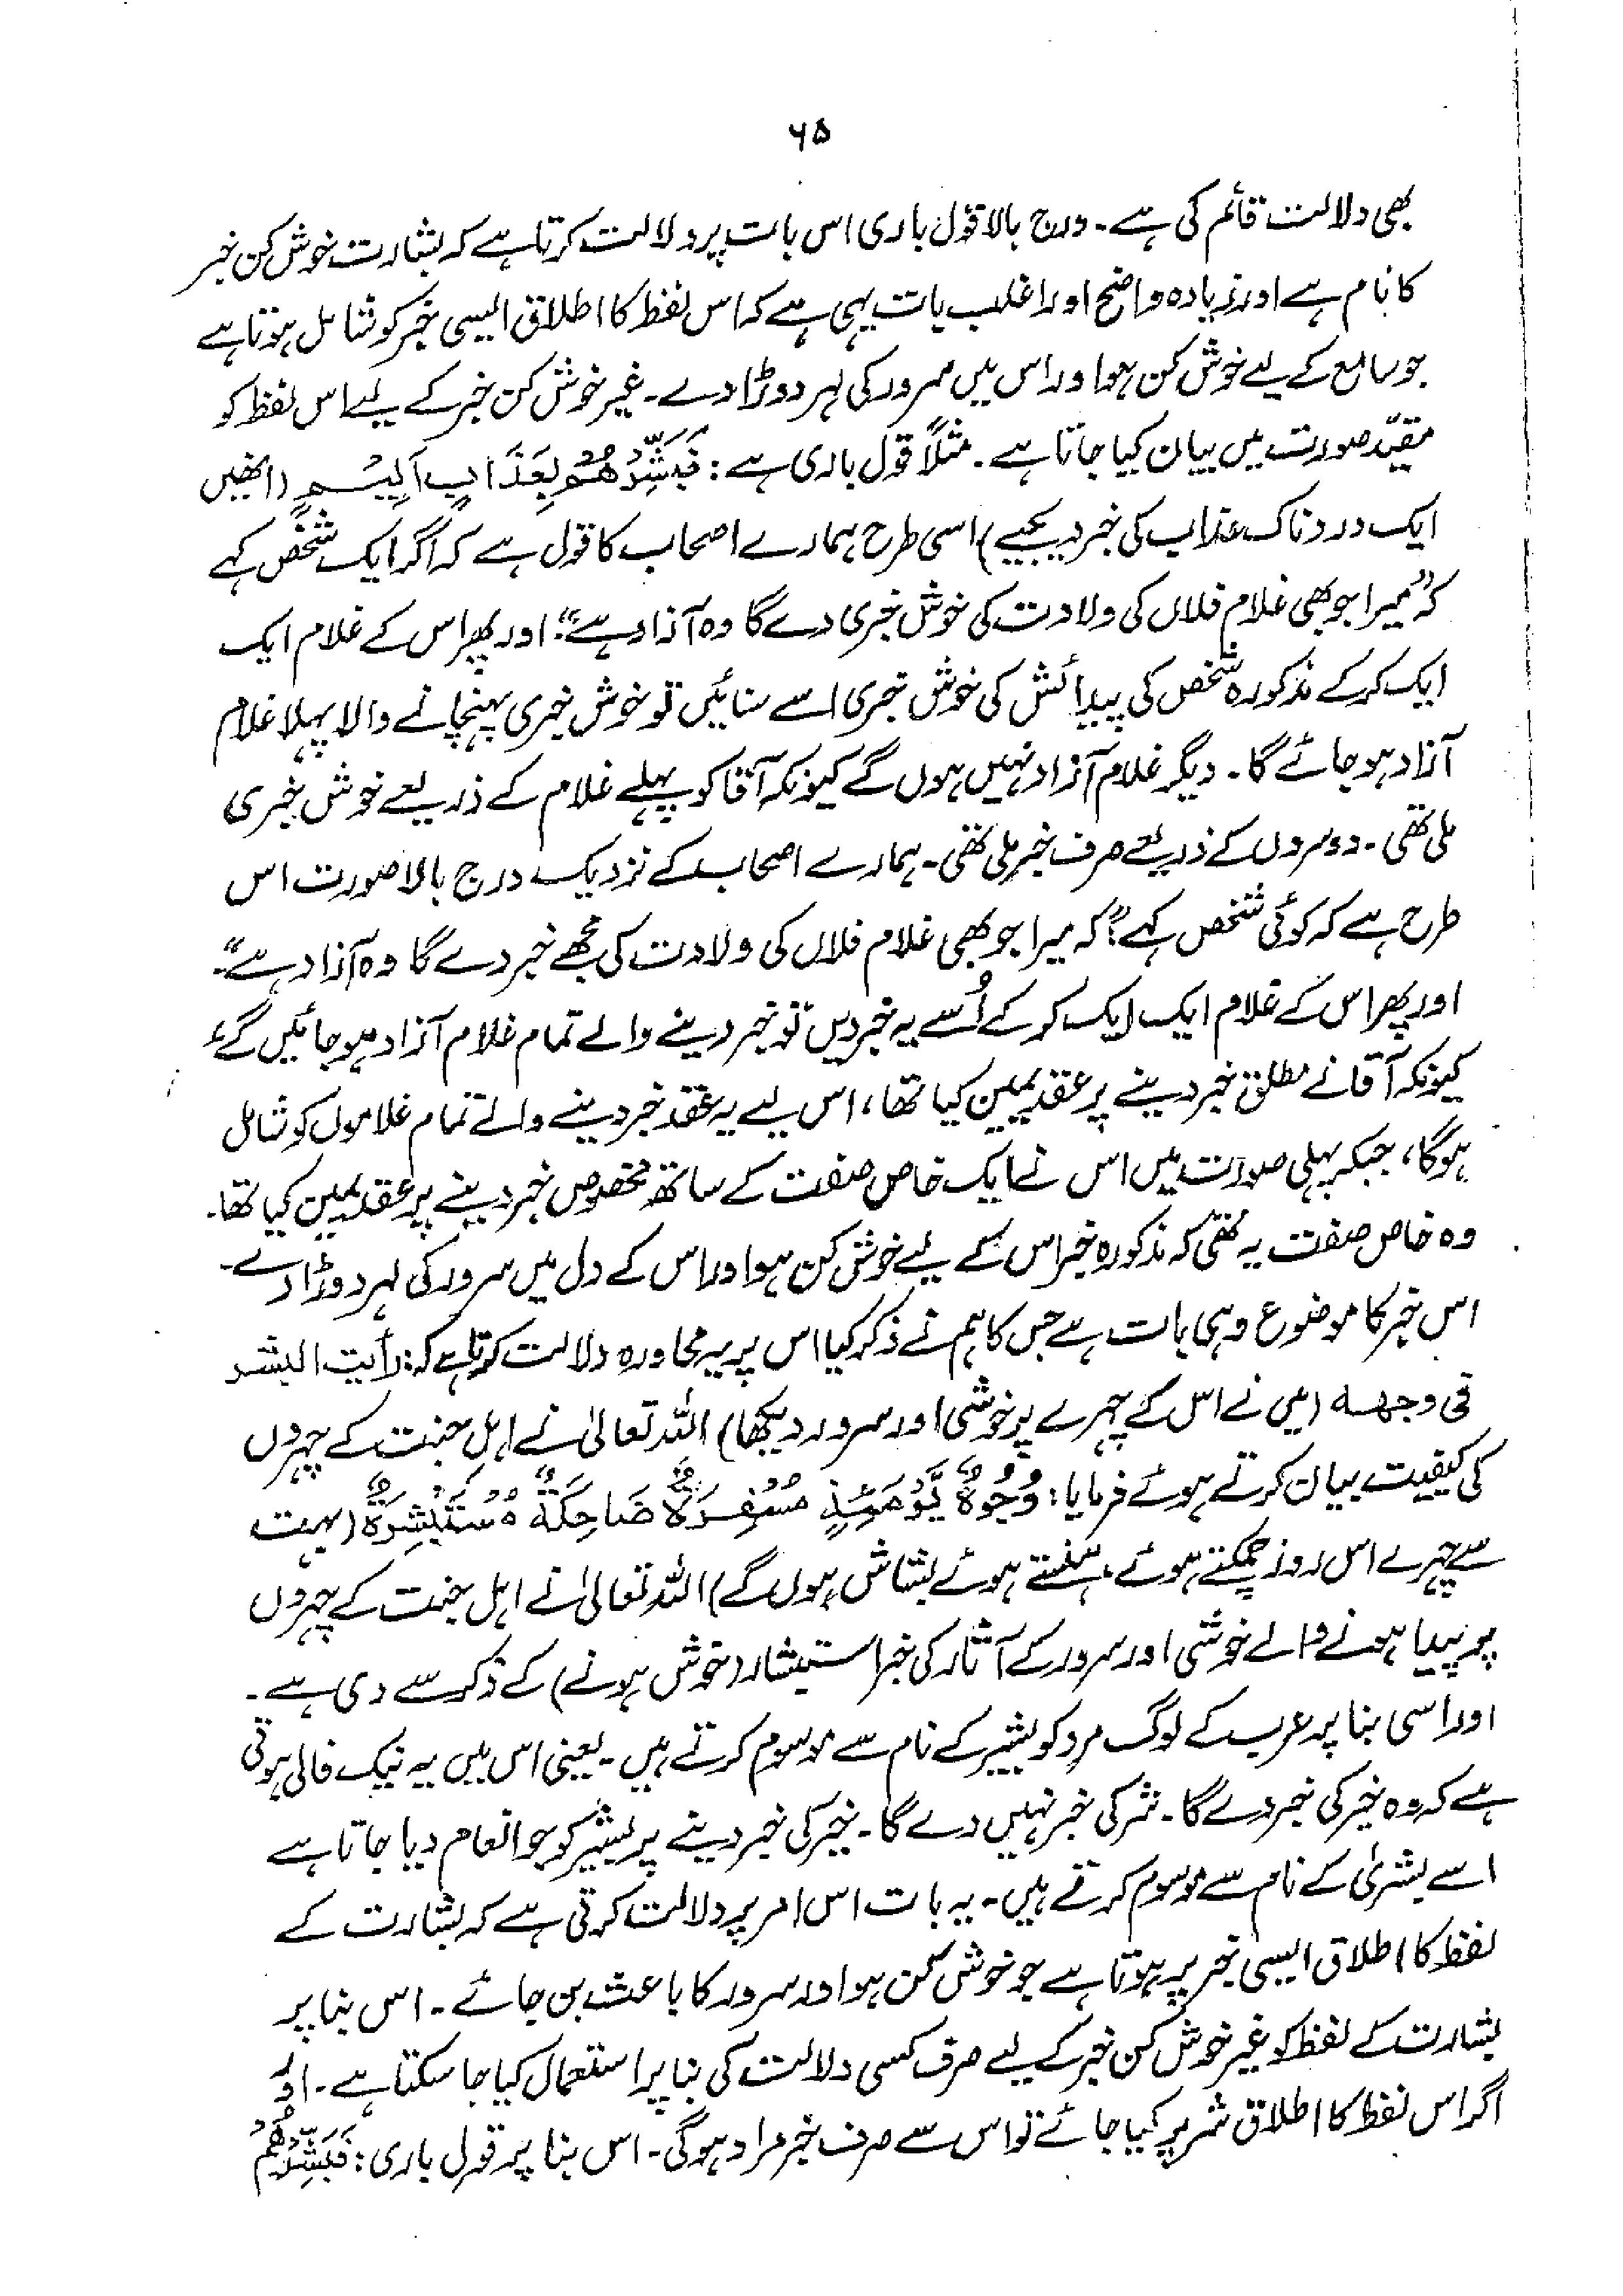 ۶۵
بھی دلالت قائم کی ہے۔ درج بالا قول باری اس بات پر دلالت کرتا ہے کہ بشارت خوش کن خبر
کا نام ہے اور زیادہ واضح اور اغلب بات یہی ہے کہ اس لفظ کا اطلاق ایسی خبر کو شامل ہوتا ہے
جو سامع کے لیے خوش کن ہو اور اس میں سرور کی لہر دوڑا دے۔ غیر خوش کن خبر کے لیے اس لفظ کو
مقیّد صورت میں بیان کیا جاتا ہے۔ مثلاً قول باری ہے: فَبَشِّرْهُمْ بِعَذَابٍ اَلِيْمٍ (انھیں
ایک دردناک عذاب کی خبر دیجیے) اسی طرح ہمارے اصحاب کا قول ہے کہ اگر ایک شخص کہے
کہ "میرا جو بھی غلام فلاں کی ولادت کی خوش خبری دے گا وہ آزاد ہے"؛ اور پھر اس کے غلام ایک
ایک کرکے مذکورہ شخص کی پیدائش کی خوش خبری اسے سنائیں تو خوش خبری پہنچانے والا پہلا غلام
آزاد ہو جائے گا۔ دیگر غلام آزاد نہیں ہوں گے کیونکہ آقا کو پہلے غلام کے ذریعے خوش خبری
ملی تھی۔ دوسروں کے ذریعے صرف خبر ملی تھی۔ ہمارے اصحاب کے نزدیک درج بالا صورت اس
طرح ہے کہ کوئی شخص کہے: "کہ میرا جو بھی غلام فلاں کی ولادت کی مجھے خبر دے گا وہ آزاد ہے"۔
اور پھر اس کے غلام ایک ایک کر کے اُسے یہ خبر دیں تو خبر دینے والے تمام غلام آزاد ہو جائیں گے،
کیونکہ آقا نے مطلق خبر دینے پر عقد یمین کیا تھا، اس لیے یہ عقد خبر دینے والے تمام غلاموں کو شامل
ہوگا، جبکہ پہلی صورت میں اس نے ایک خاص صفت کے ساتھ مخصوص خبر دینے پر عقد یمین کیا تھا۔
وہ خاص صفت یہ تھی کہ مذکورہ خبر اس کے لیے خوش کن ہو اور اس کے دل میں سرور کی لہر دوڑا دے۔
اس خبر کا موضوع وہی بات ہے جس کا ہم نے ذکر کیا اس پر یہ محاورہ دلالت کرتا ہے کہ: رأیت البشر
فی وجھہ (میں نے اس کے چہرے پر خوشی اور سرور دیکھا) اللہ تعالیٰ نے اہل جنت کے چہروں
کی کیفیت بیان کرتے ہوئے فرمایا: وُجُوْهٌ يَّوْمَئِذٍ مُسْفِرَةٌ ضَاحِكَةٌ مُسْتَبْشِرَةٌ (بہت
سے چہرے اس روز چمکتے ہوئے ہنستے ہوئے بشاش ہوں گے) اللہ تعالیٰ نے اہل جنت کے چہروں
پر پیدا ہونے والے خوشی اور سرور کے آثار کی خبر استبشار (خوش ہونے) کے ذکر سے دی ہے۔
اور اسی بنا پر عرب کے لوگ مرد کو بشیر کے نام سے موسوم کرتے ہیں۔ یعنی اس میں یہ نیک فالی ہوتی
ہے کہ وہ خیر کی خبر دے گا۔ شر کی خبر نہیں دے گا۔ خیر کی خبر دینے پر بشیر کو جو انعام دیا جاتا ہے
اسے بشریٰ کے نام سے موسوم کرتے ہیں۔ یہ بات اس امر پر دلالت کرتی ہے کہ بشارت کے
لفظ کا اطلاق ایسی خبر پر ہوتا ہے جو خوش کن ہو اور سرور کا باعث بن جائے۔ اس بنا پر
بشارت کے لفظ کو غیر خوش کن خبر کے لیے صرف کسی دلالت کی بنا پر استعمال کیا جا سکتا ہے۔ اور
اگر اس لفظ کا اطلاق شر پر کیا جائے تو اس سے صرف خبر مراد ہوگی۔ اس بنا پر قول باری: فَبَشِّرْهُمْ